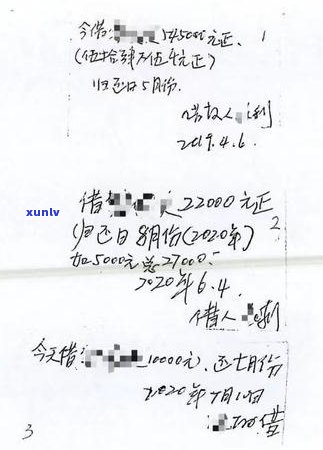 今借: 545000元正. 1
(伍拾肆万伍仟元正)
归还日5月份.
借款人 利
2019.4.6.
xunlv
借 22000元正
归还日 8月份(2020年) 2
加5000元总27000.
2020年6.4.
借人
今天借: 10000元、还七月份
2020年7月
借
3